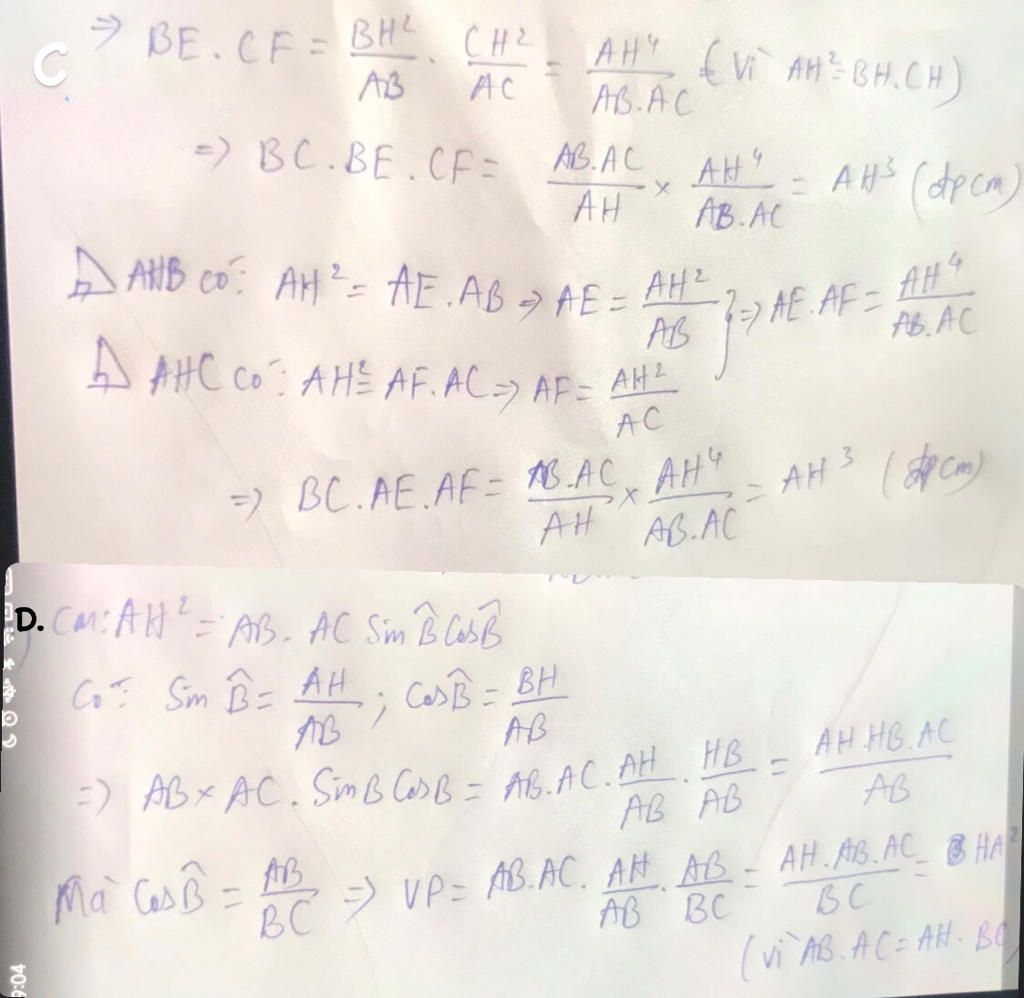 C
⇒ BE . CF = BH²/AB . CH²/AC = AH⁴/AB.AC (Vì AH² = BH.CH)
⇒ BC . BE . CF = AB.AC/AH × AH⁴/AB.AC = AH³ (đpcm)
△ AHB có: AH² = AE . AB ⇒ AE = AH²/AB } ⇒ AE.AF = AH⁴/AB.AC
△ AHC có: AH² = AF.AC ⇒ AF = AH²/AC
⇒ BC.AE.AF = AB.AC/AH × AH⁴/AB.AC = AH³ (đpcm)
D. Cm: AH² = AB . AC Sin B̂ Cos B̂
Có: Sin B̂ = AH/AB ; Cos B̂ = BH/AB
⇒ AB × AC . Sin B Cos B = AB.AC . AH/AB . HB/AB = AH.HB.AC/AB
Mà Cos B̂ = AB/BC ⇒ VP = AB.AC . AH/AB . AB/BC = AH.AB.AC/BC = HA²
(vì AB.AC = AH.BC
9:04